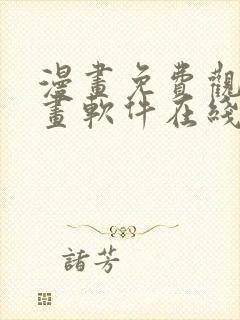 漫畫免費觀
畫軟件在綫
諸芳